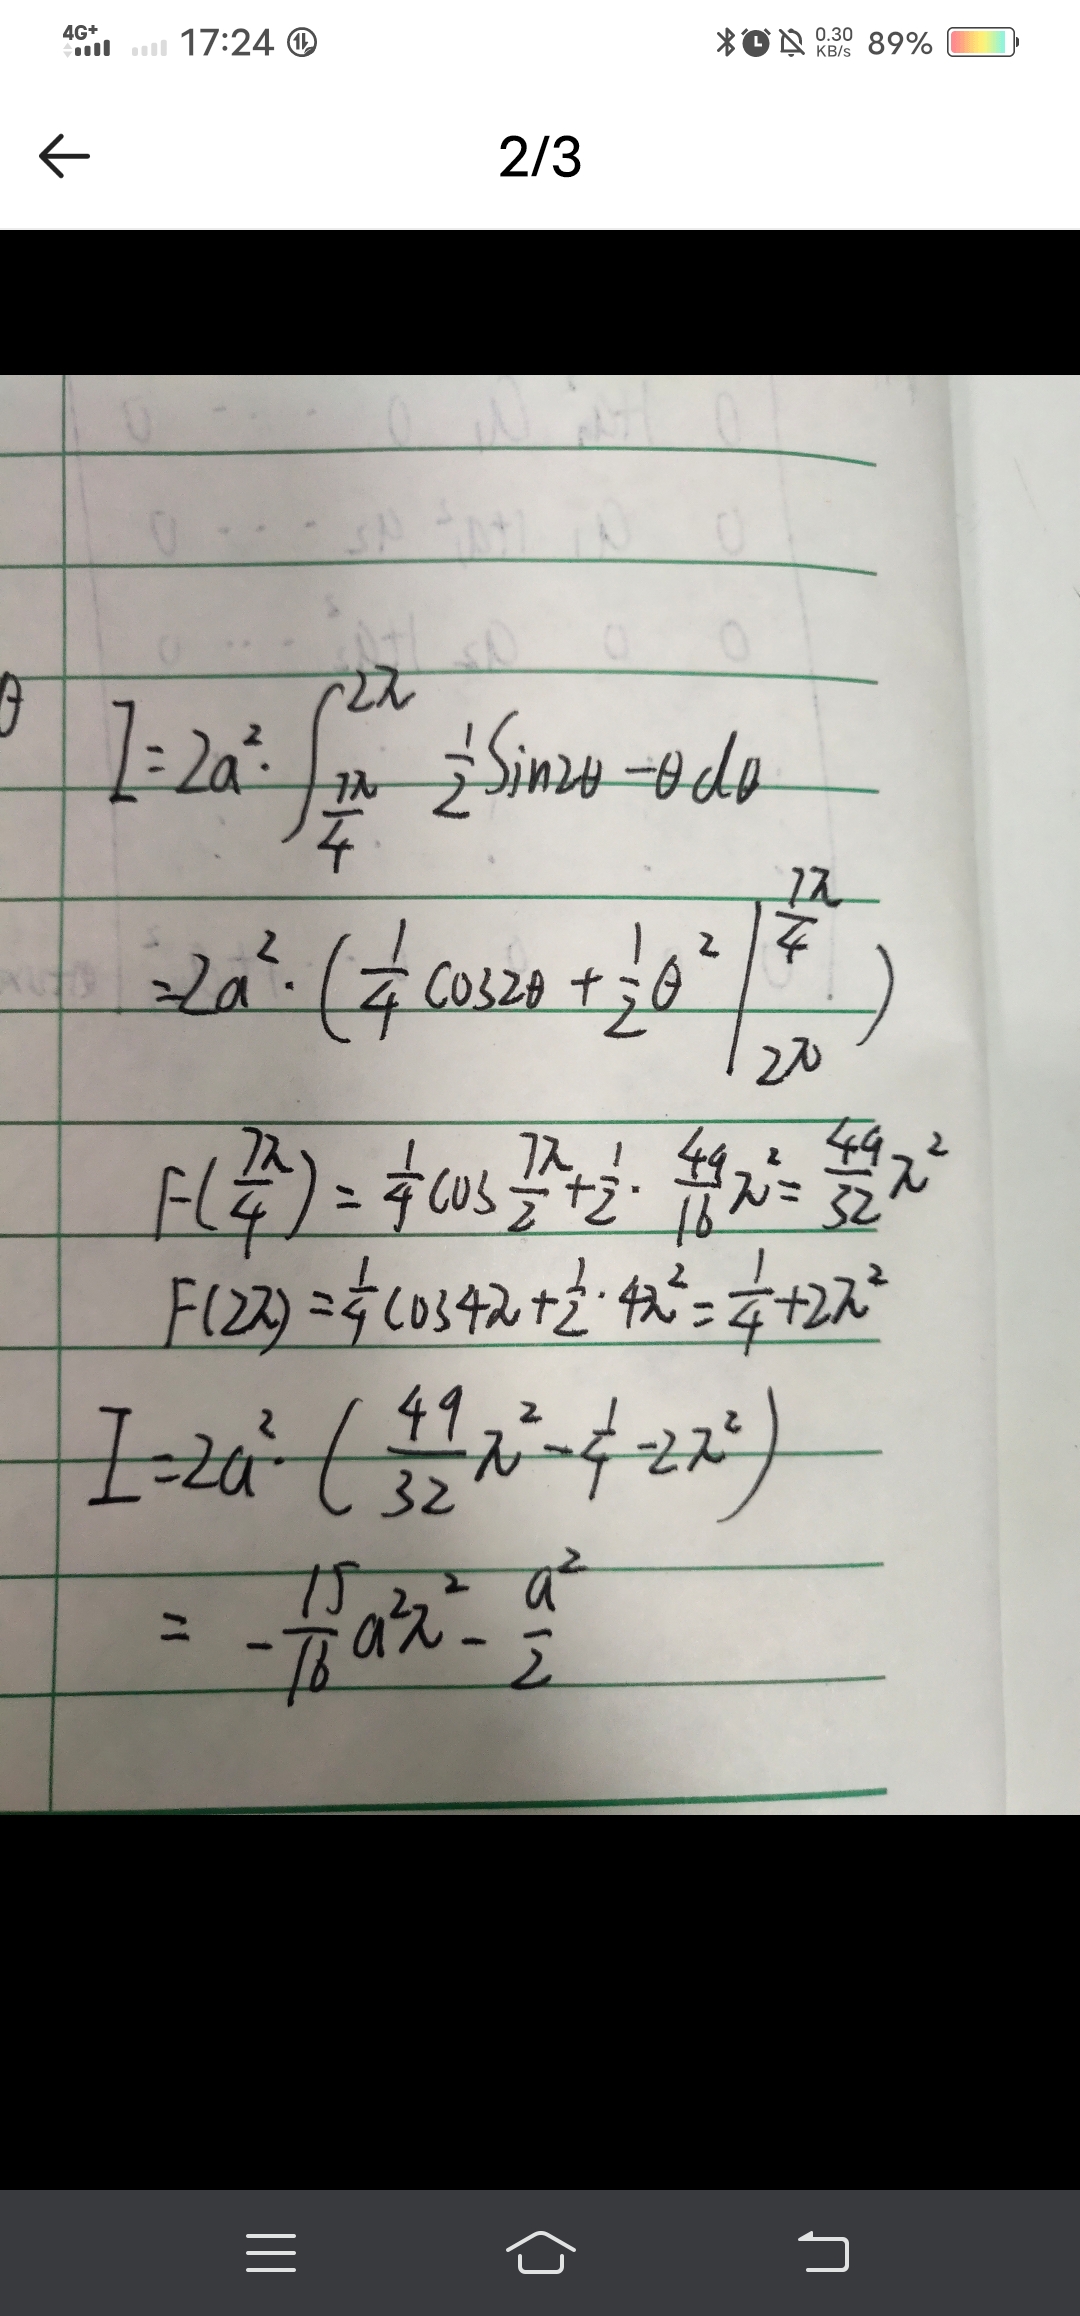 4G+ 17:24 0.30 KB/s 89%
2/3
θ I=2a²·∫_{7π/4}^{2π} 1/2 Sin2θ -θ dθ
=2a²·(1/4 cos2θ + 1/2 θ² |_{2π}^{7π/4})
F(7π/4) = 1/4 cos 7π/2 + 1/2 · 49/16 π² = 49/32 π²
F(2π) = 1/4 cos4π + 1/2 · 4π² = 1/4 + 2π²
I=2a²·(49/32 π² - 1/4 - 2π²)
= -15/16 a²π² - a²/2